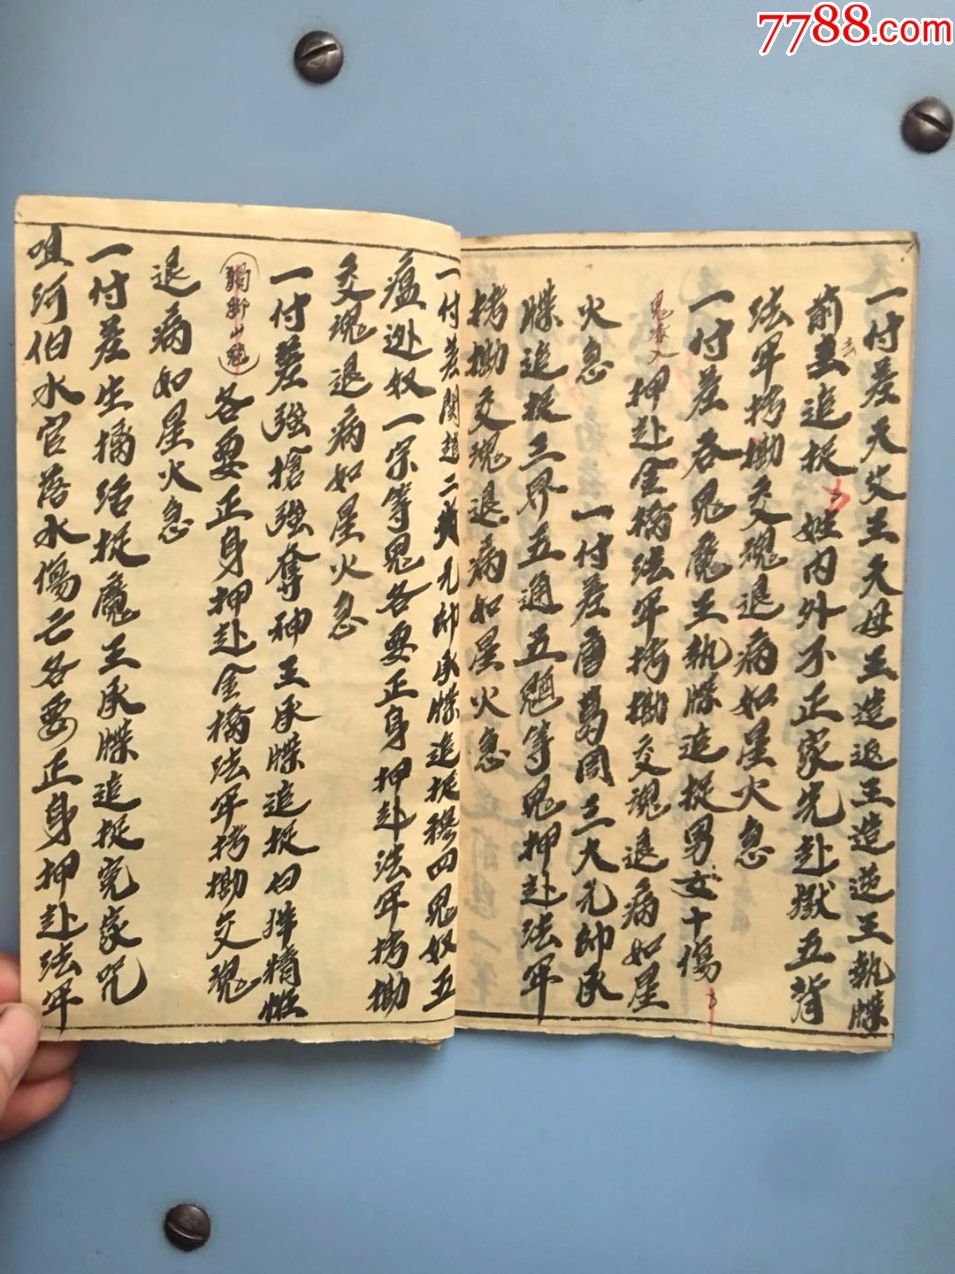 7788.com
一付差天父王天母王造返王造逆王執牒
前去追捉 姓內外不正家先赴獄五音
法军拷掤交魂退病如星火急
一付差各鬼魔王執牒追捉男女十傷
鬼眷人押赴金橋法军拷掤交魂退病如星
火急 一付差唐葛周三大元帥承
牒追捉三界五通五魈等鬼押赴法军
拷掤交魂退病如星火急
一付差関趙二 元帥承牒追捉 四鬼奴五
瘟 奴一宗等鬼各要正身押赴法军拷掤
交魂退病如星火急
一付差強搶強奪神王承牒追捉 精怪
各要正身押赴金橋法军拷掤交魂
退病如星火急
一付差生擒活捉魔王承牒追捉冤家咒
咀河伯水官落水傷亡各要正身押赴法军